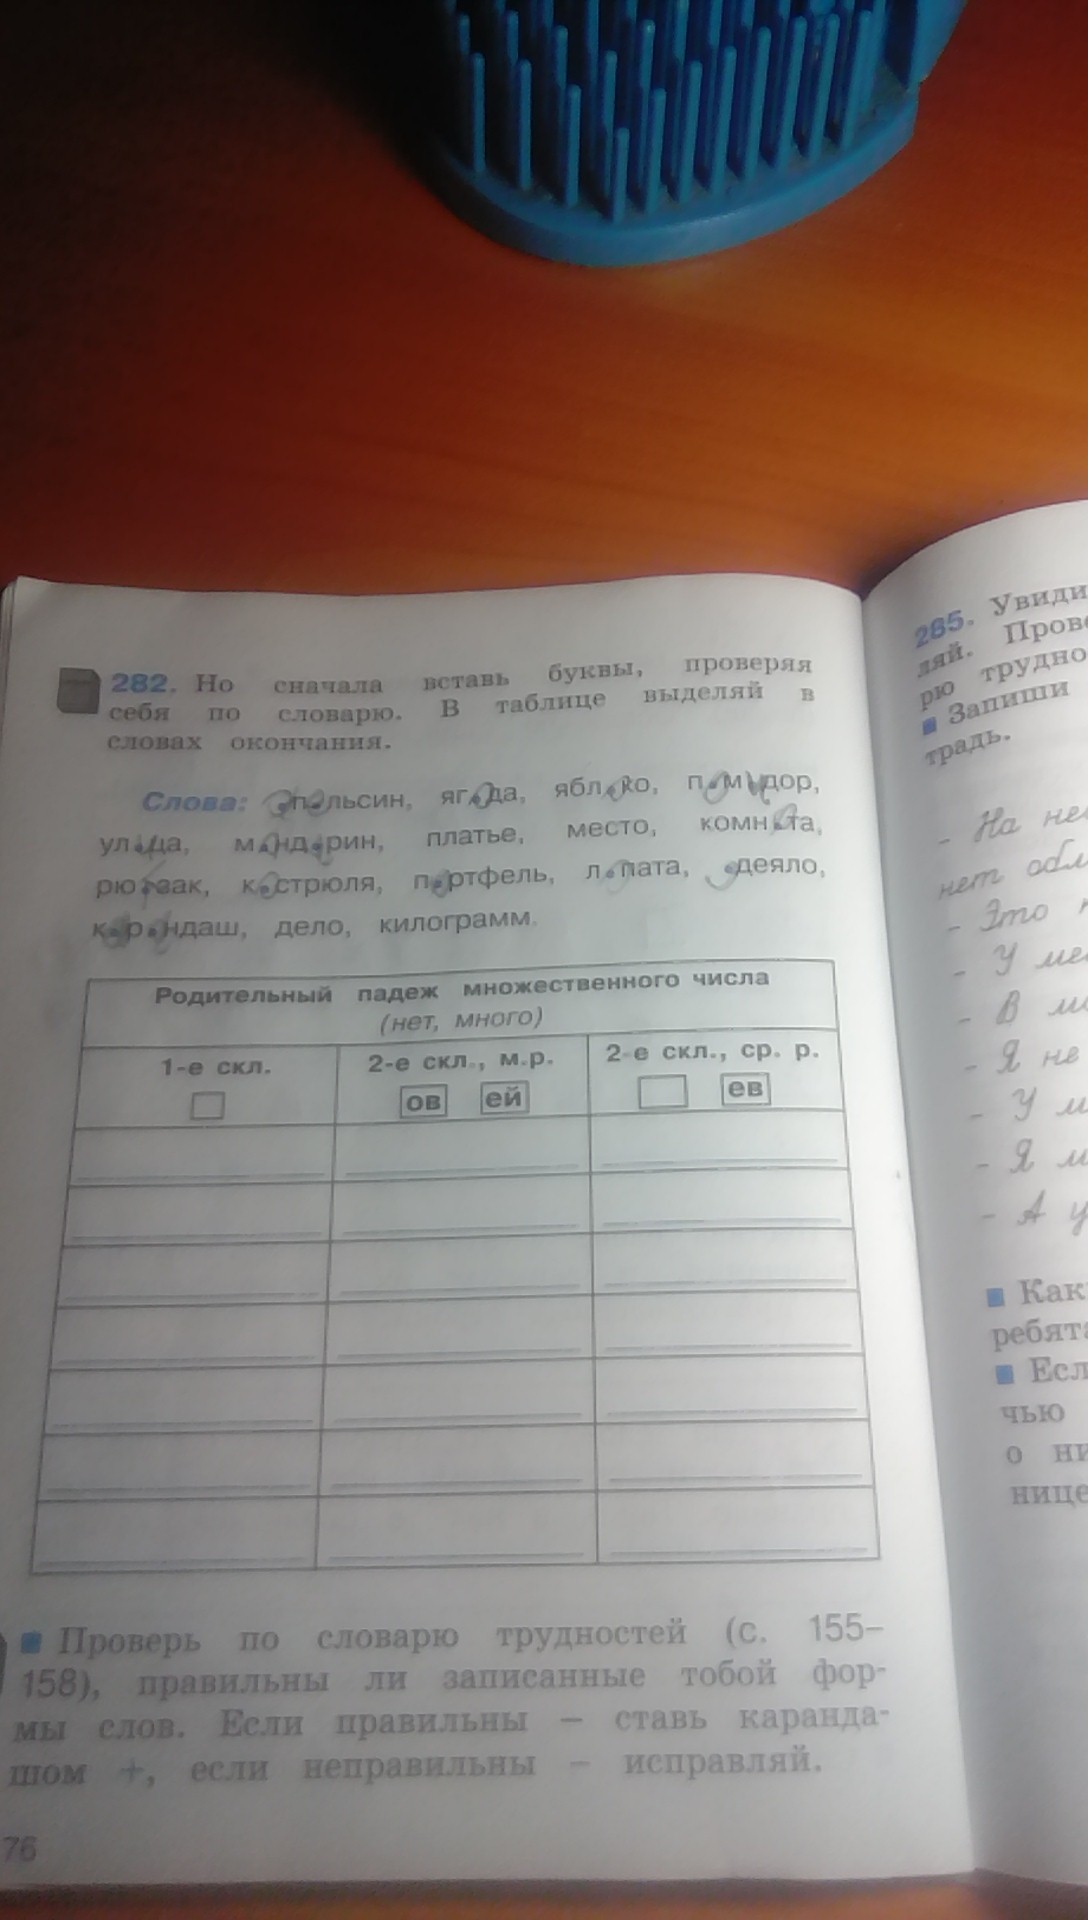 282. Но сначала вставь буквы, проверяя
себя по словарю. В таблице выделяй в
словах окончания.
Слова: апельсин, ягода, яблоко, помидор,
улица, мандарин, платье, место, комната,
рюкзак, кастрюля, портфель, лопата, одеяло,
карандаш, дело, килограмм.
Родительный падеж множественного числа
(нет, много)
1-е скл.
2-е скл., м.р.
ов ей
2-е скл., ср. р.
ев
■ Проверь по словарю трудностей (с. 155–
158), правильны ли записанные тобой фор-
мы слов. Если правильны – ставь каранда-
шом +, если неправильны – исправляй.
76
285. Увиди
ляй. Прове
рю трудно
■ Запиши
традь.
- На не
нет обл
- Это
- У ме
- В
- Я не
- У м
- Я м
- А у
■ Как
ребята
■ Есл
чью
о ни
нице